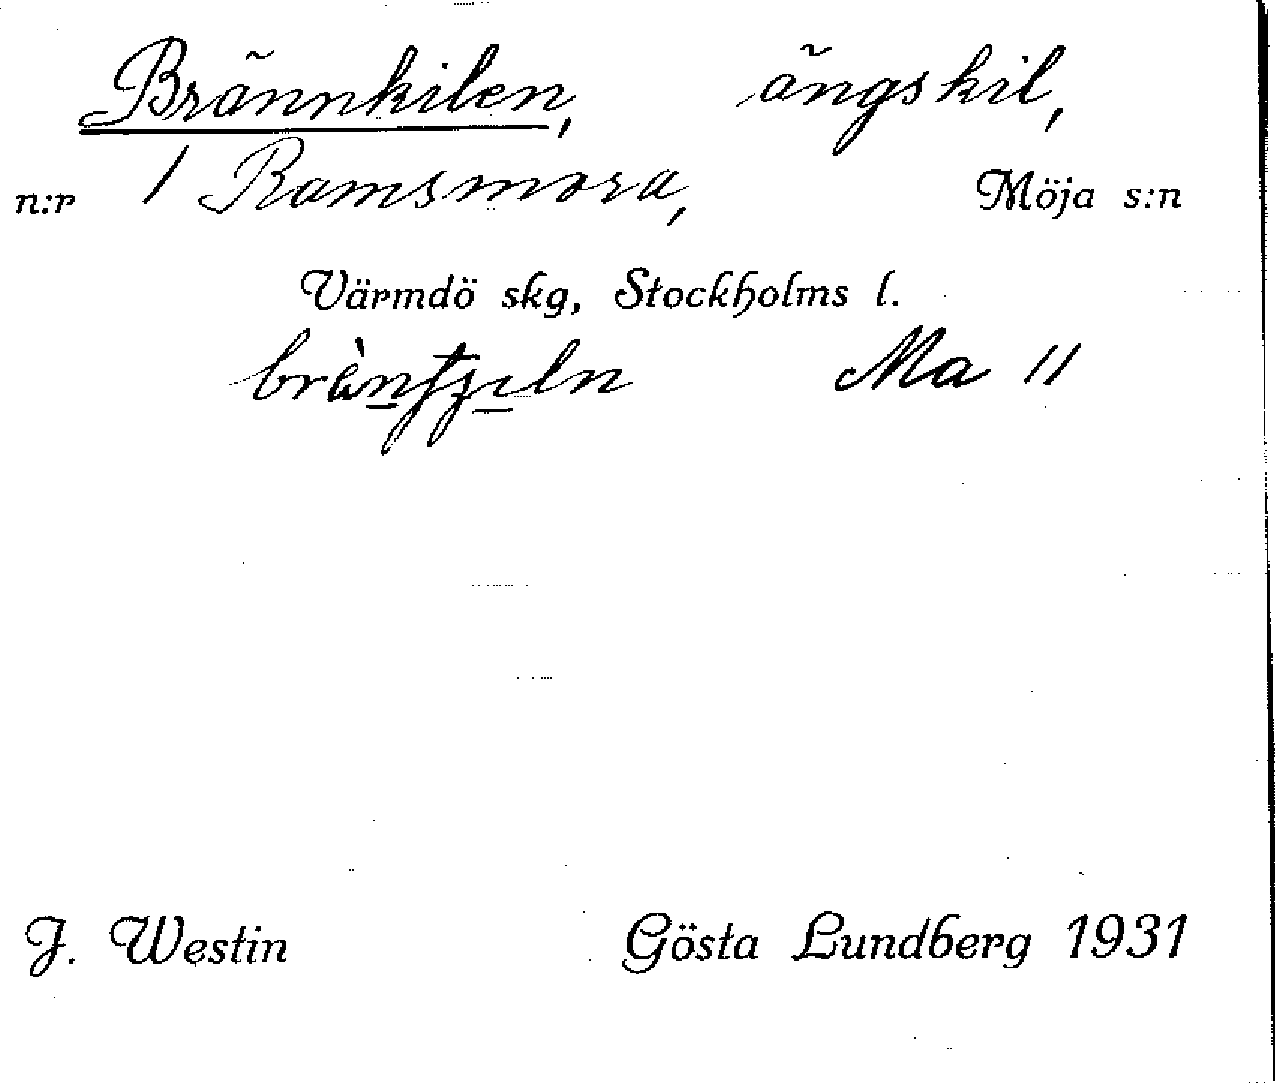 Brännkilen, ängskil,
n:r 1 Ramsmora, Möja s:n
Värmdö skg, Stockholms l.
Ma 11
J. Westin Gösta Lundberg 1931